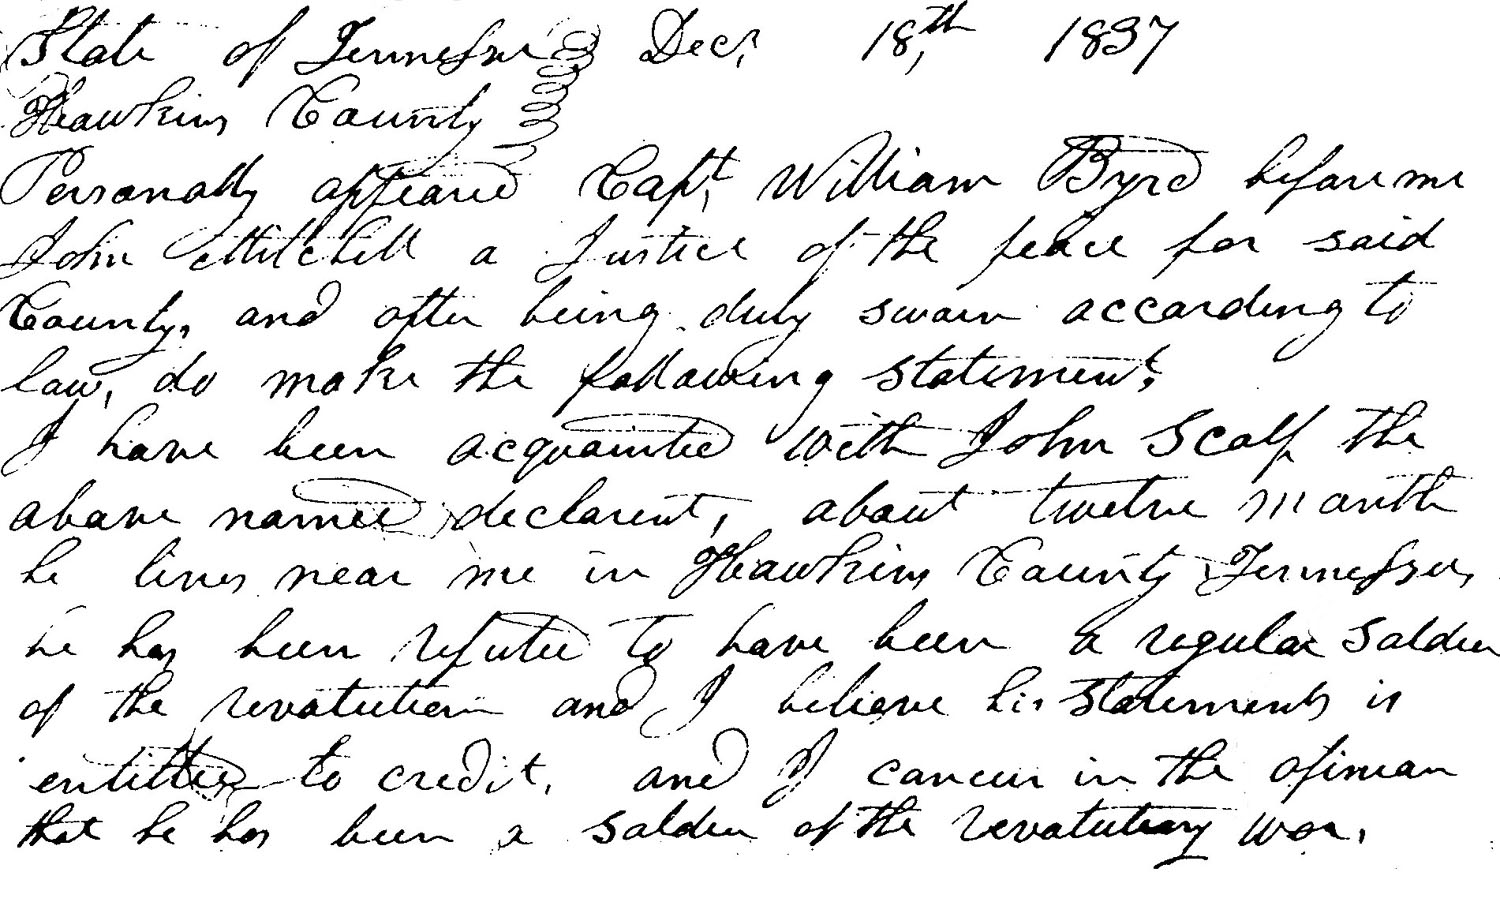 State of Tennessee Decr 18th, 1837
Hawkins County
Personally appeared Capt, William Byrd before me
John Mitchell a Justice of the peace for said
County, and after being duly sworn according to
law, do make the following statement;
I have been acquainted with John Scalf the
above named declarent, about twelve month
he lives near me in Hawkins County Tennessee,
he has been reputed to have been a regular solder
of the revolution and I believe his statements is
entitled to credit, and I concur in the opinion
that he has been a solder of the revolutiary war.